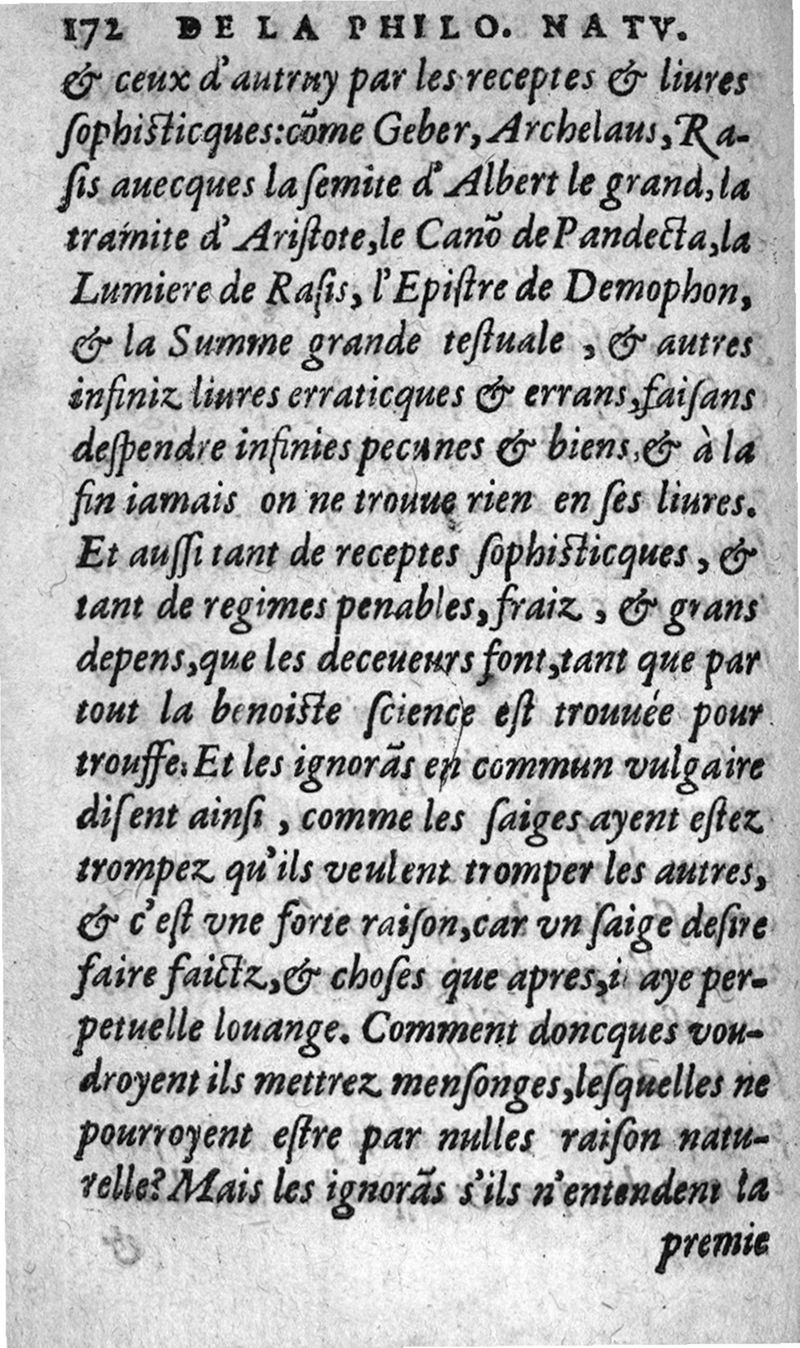 172 DE LA PHILO. NATV.
& ceux d'autruy par les receptes & liures
ſophiſticques: cõme Geber, Archelaus, Ra-
ſis auecques la ſemite d'Albert le grand, la
tramite d'Ariſtote, le Canõ de Pandecta, la
Lumiere de Raſis, l'Epiſtre de Demophon,
& la Summe grande teſtuale , & autres
infiniz liures erraticques & errans, faiſans
deſpendre infinies pecunes & biens, & à la
fin iamais on ne trouue rien en ſes liures.
Et auſſi tant de receptes ſophiſticques , &
tant de regimes penables, fraiz , & grans
depens, que les deceueurs font, tant que par
tout la benoiſte ſcience eſt trouuée pour
trouffe. Et les ignorãs en commun vulgaire
diſent ainſi , comme les ſaiges ayent eſtez
trompez qu'ils veulent tromper les autres,
& c'eſt vne forte raiſon, car vn ſaige deſire
faire faictz, & choſes que apres, aye per-
petuelle louange. Comment doncques vou-
droyent ils mettrez menſonges, leſquelles ne
pourroyent eſtre par nulles raiſon natu-
relle? Mais les ignorãs s'ils n'entendent la
premie